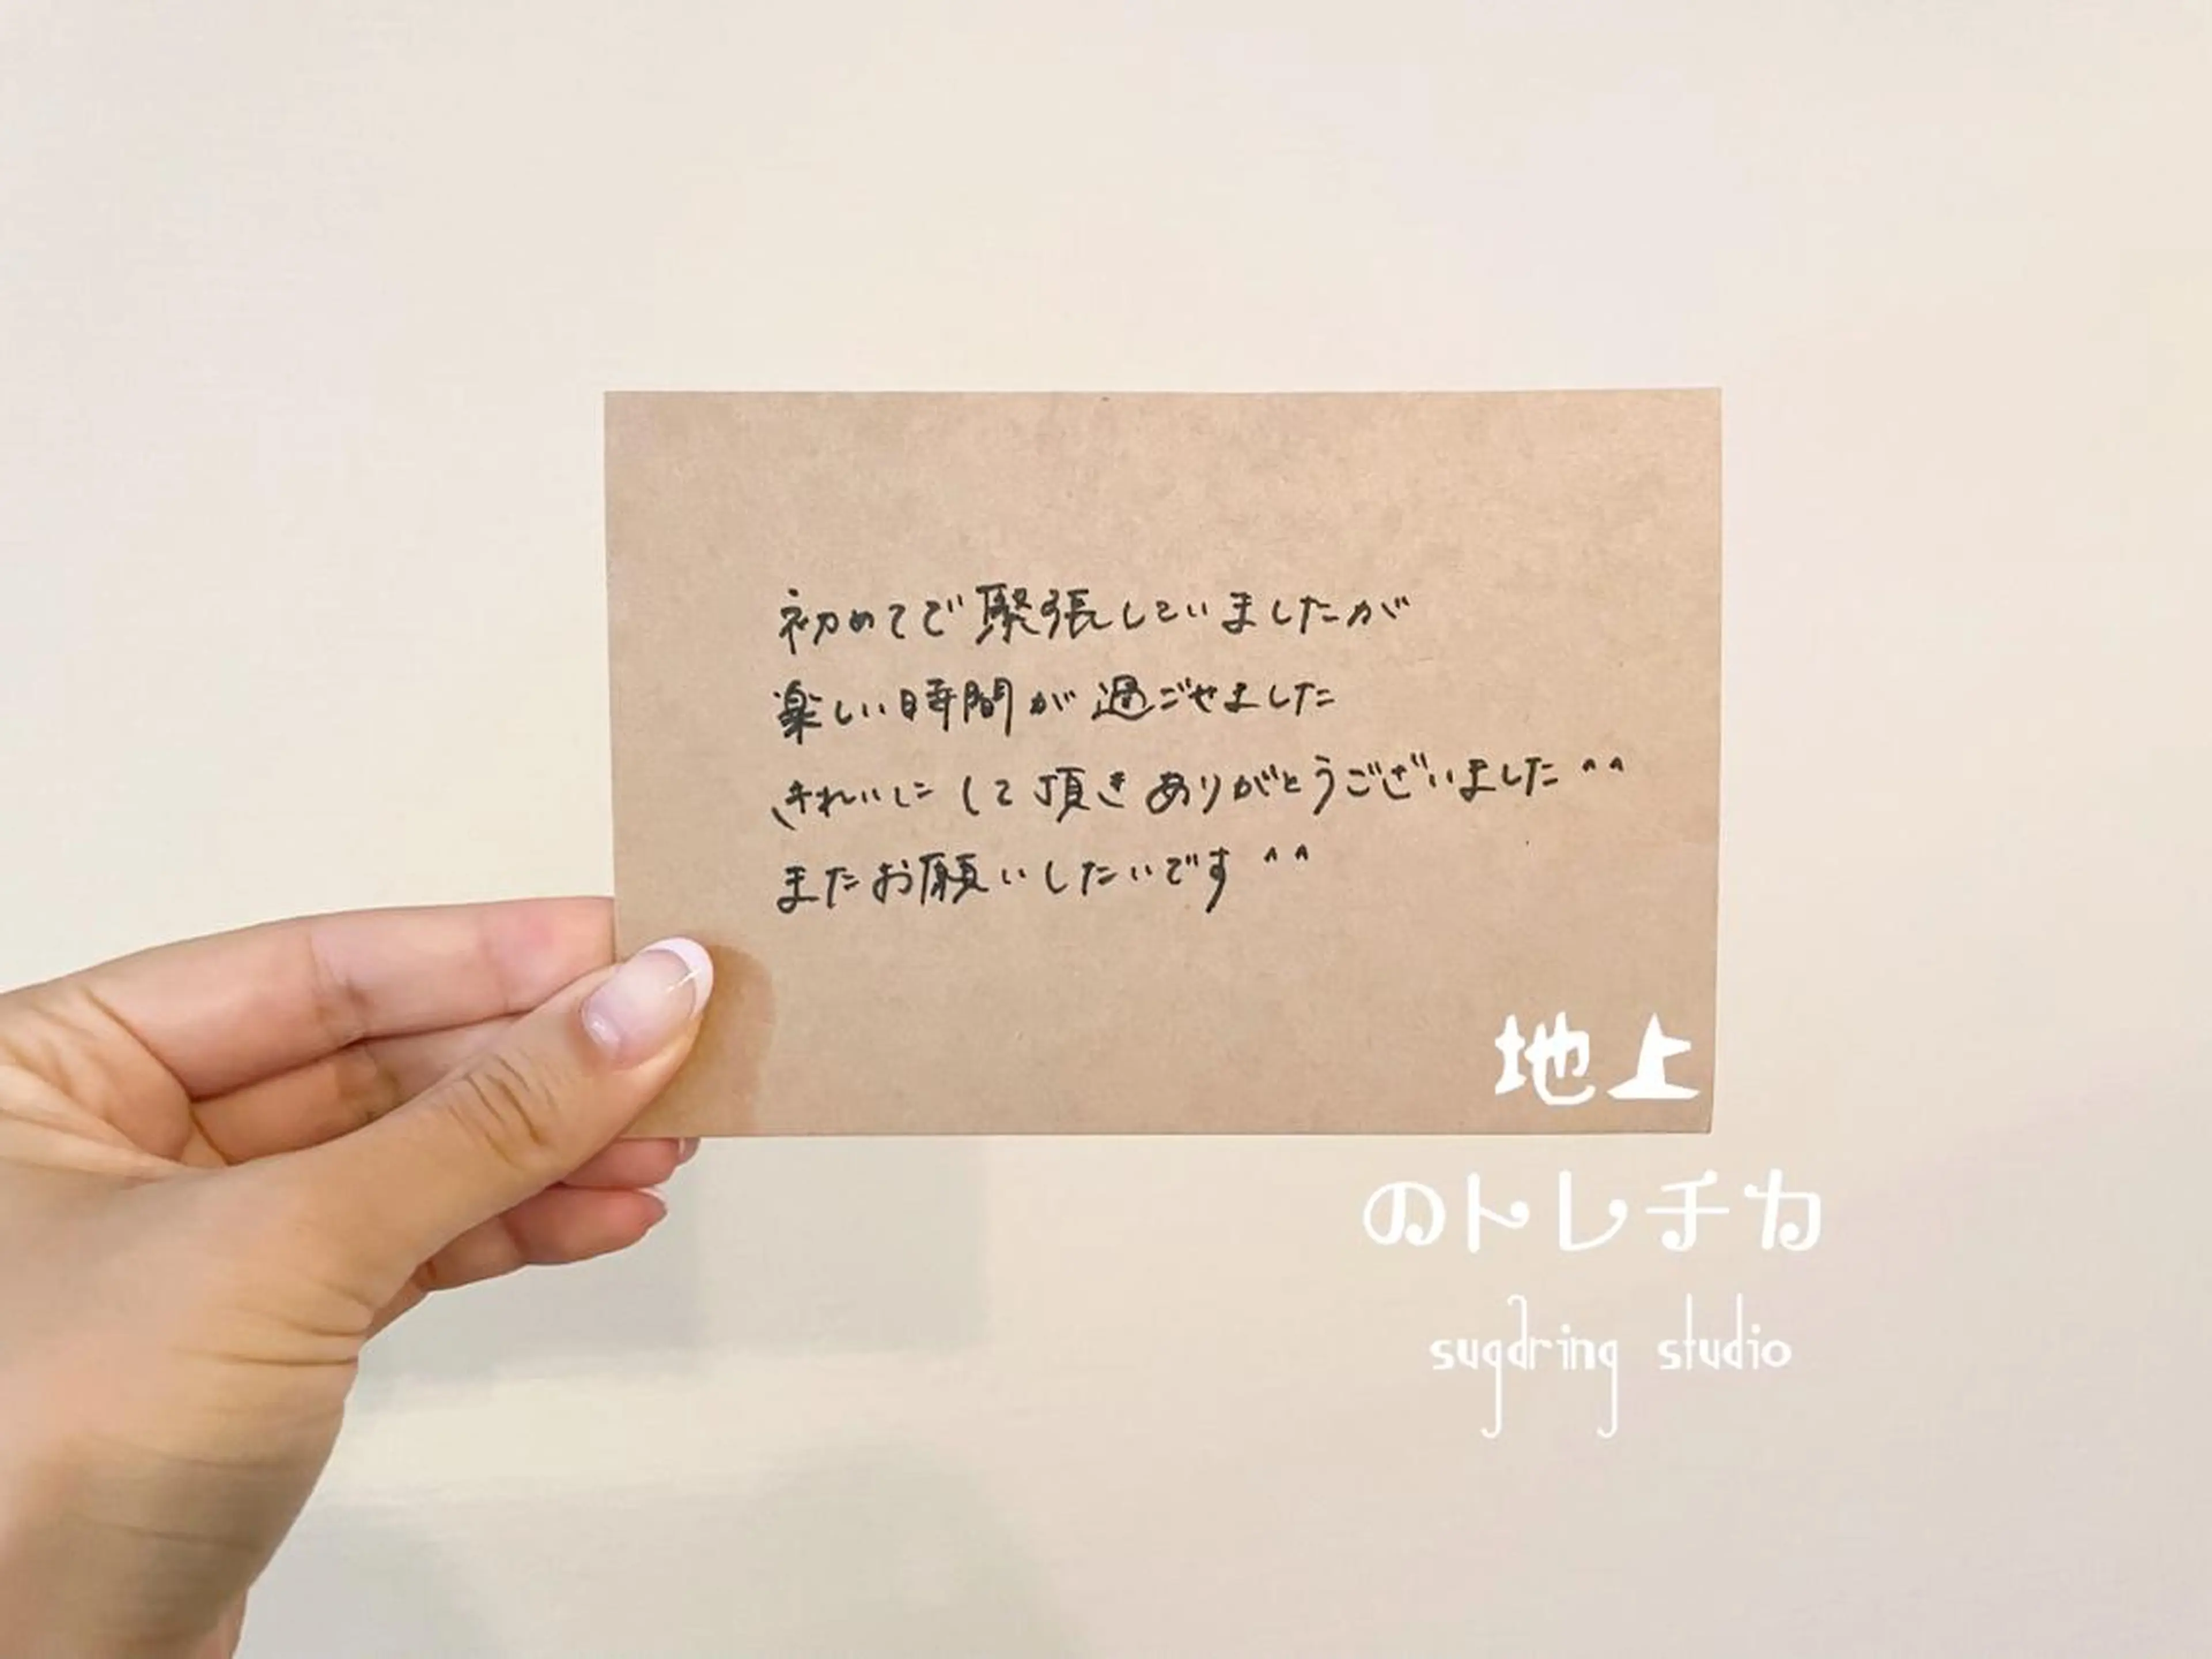 初めてで緊張していましたが
楽しい時間が過ごせました
きれいにして頂きありがとうございました^^
またお願いしたいです^^
地上
のトレチカ
sugaring studio